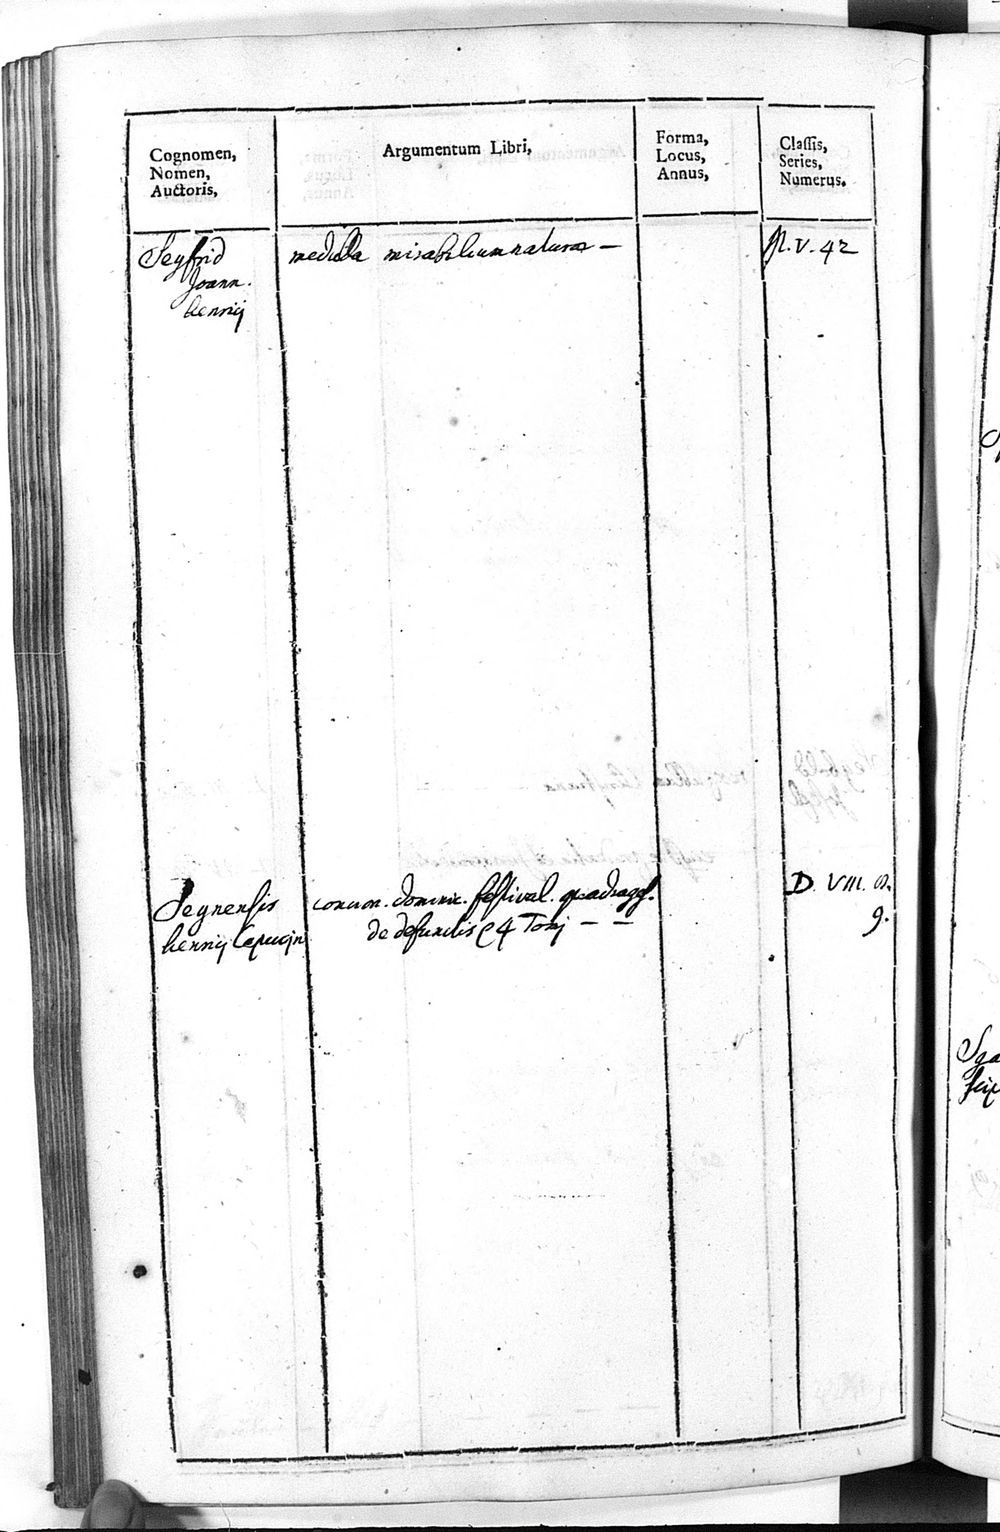 Cognomen,
Nomen,
Auctoris,
Argumentum Libri,
Forma,
Locus,
Annus,
Classis,
Series,
Numerus.
Seyfrid
Joann.
henrij
medulla mirabilium naturæ —
V. 42
Seynensis
henrij Capucin
concion. dominic. festival. quadrages.
de defunctis 4 Tomj — —
D. VIII. 8.
9.